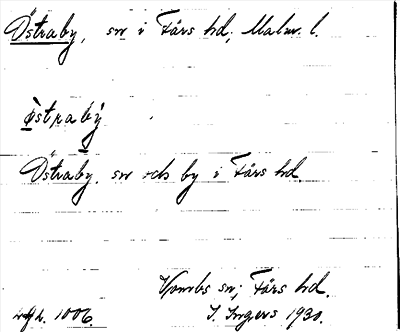 Östraby, sn i Färs hd, Malm. l.
östraby
Östraby. sn och by i Färs hd.
Vombs sn, Färs hd.
I. Ingers 1930.